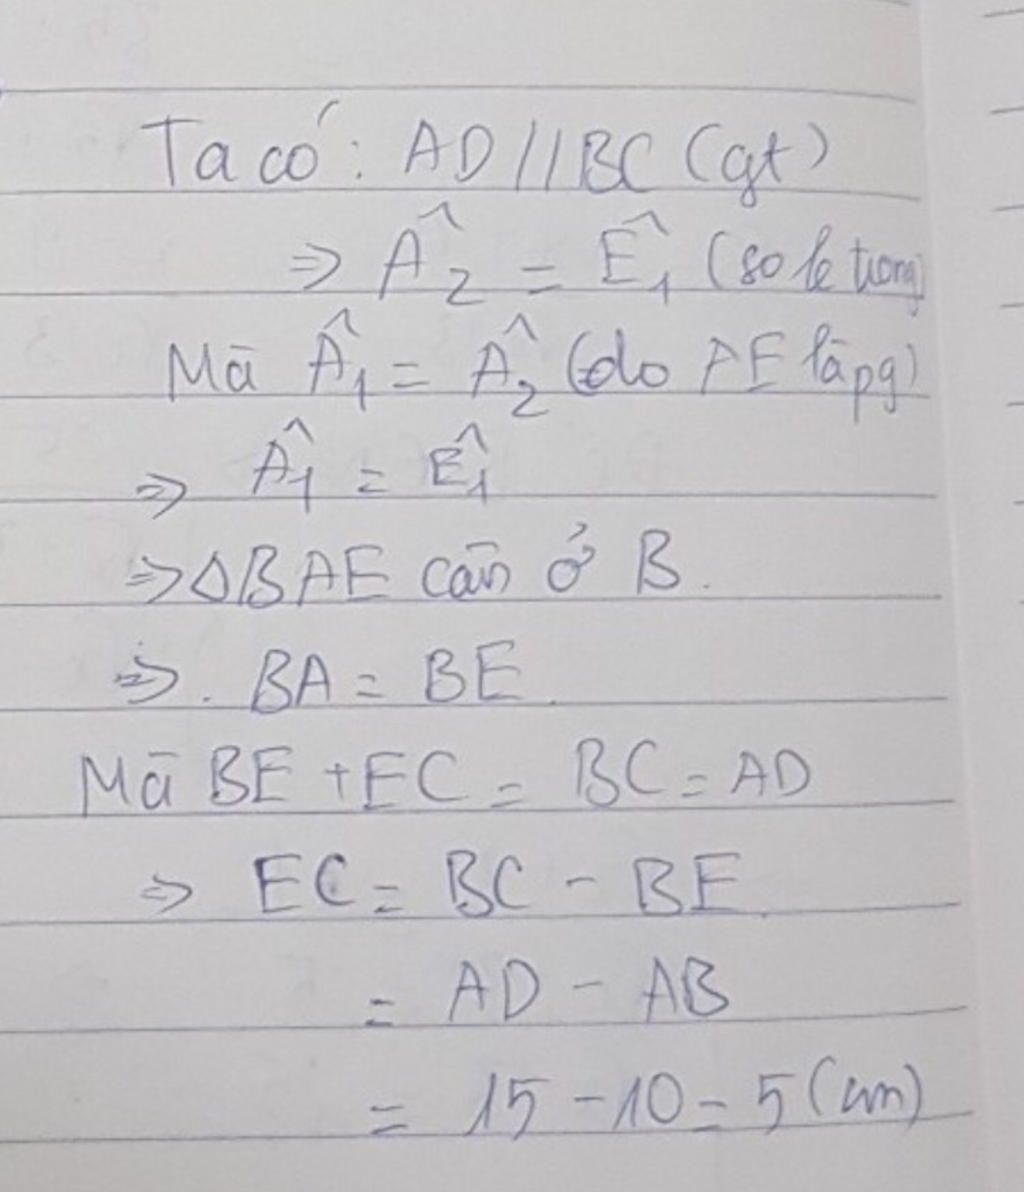 Ta có: AD // BC (gt)
⇒ Â₂ = Ê₁ (so le trong)
Mà Â₁ = Â₂ (do AE là pg)
⇒ Â₁ = Ê₁
⇒ ΔBAE cân ở B.
⇒ . BA = BE.
Mà BE + EC = BC = AD
⇒ EC = BC - BE.
= AD - AB
= 15 - 10 = 5 (cm)